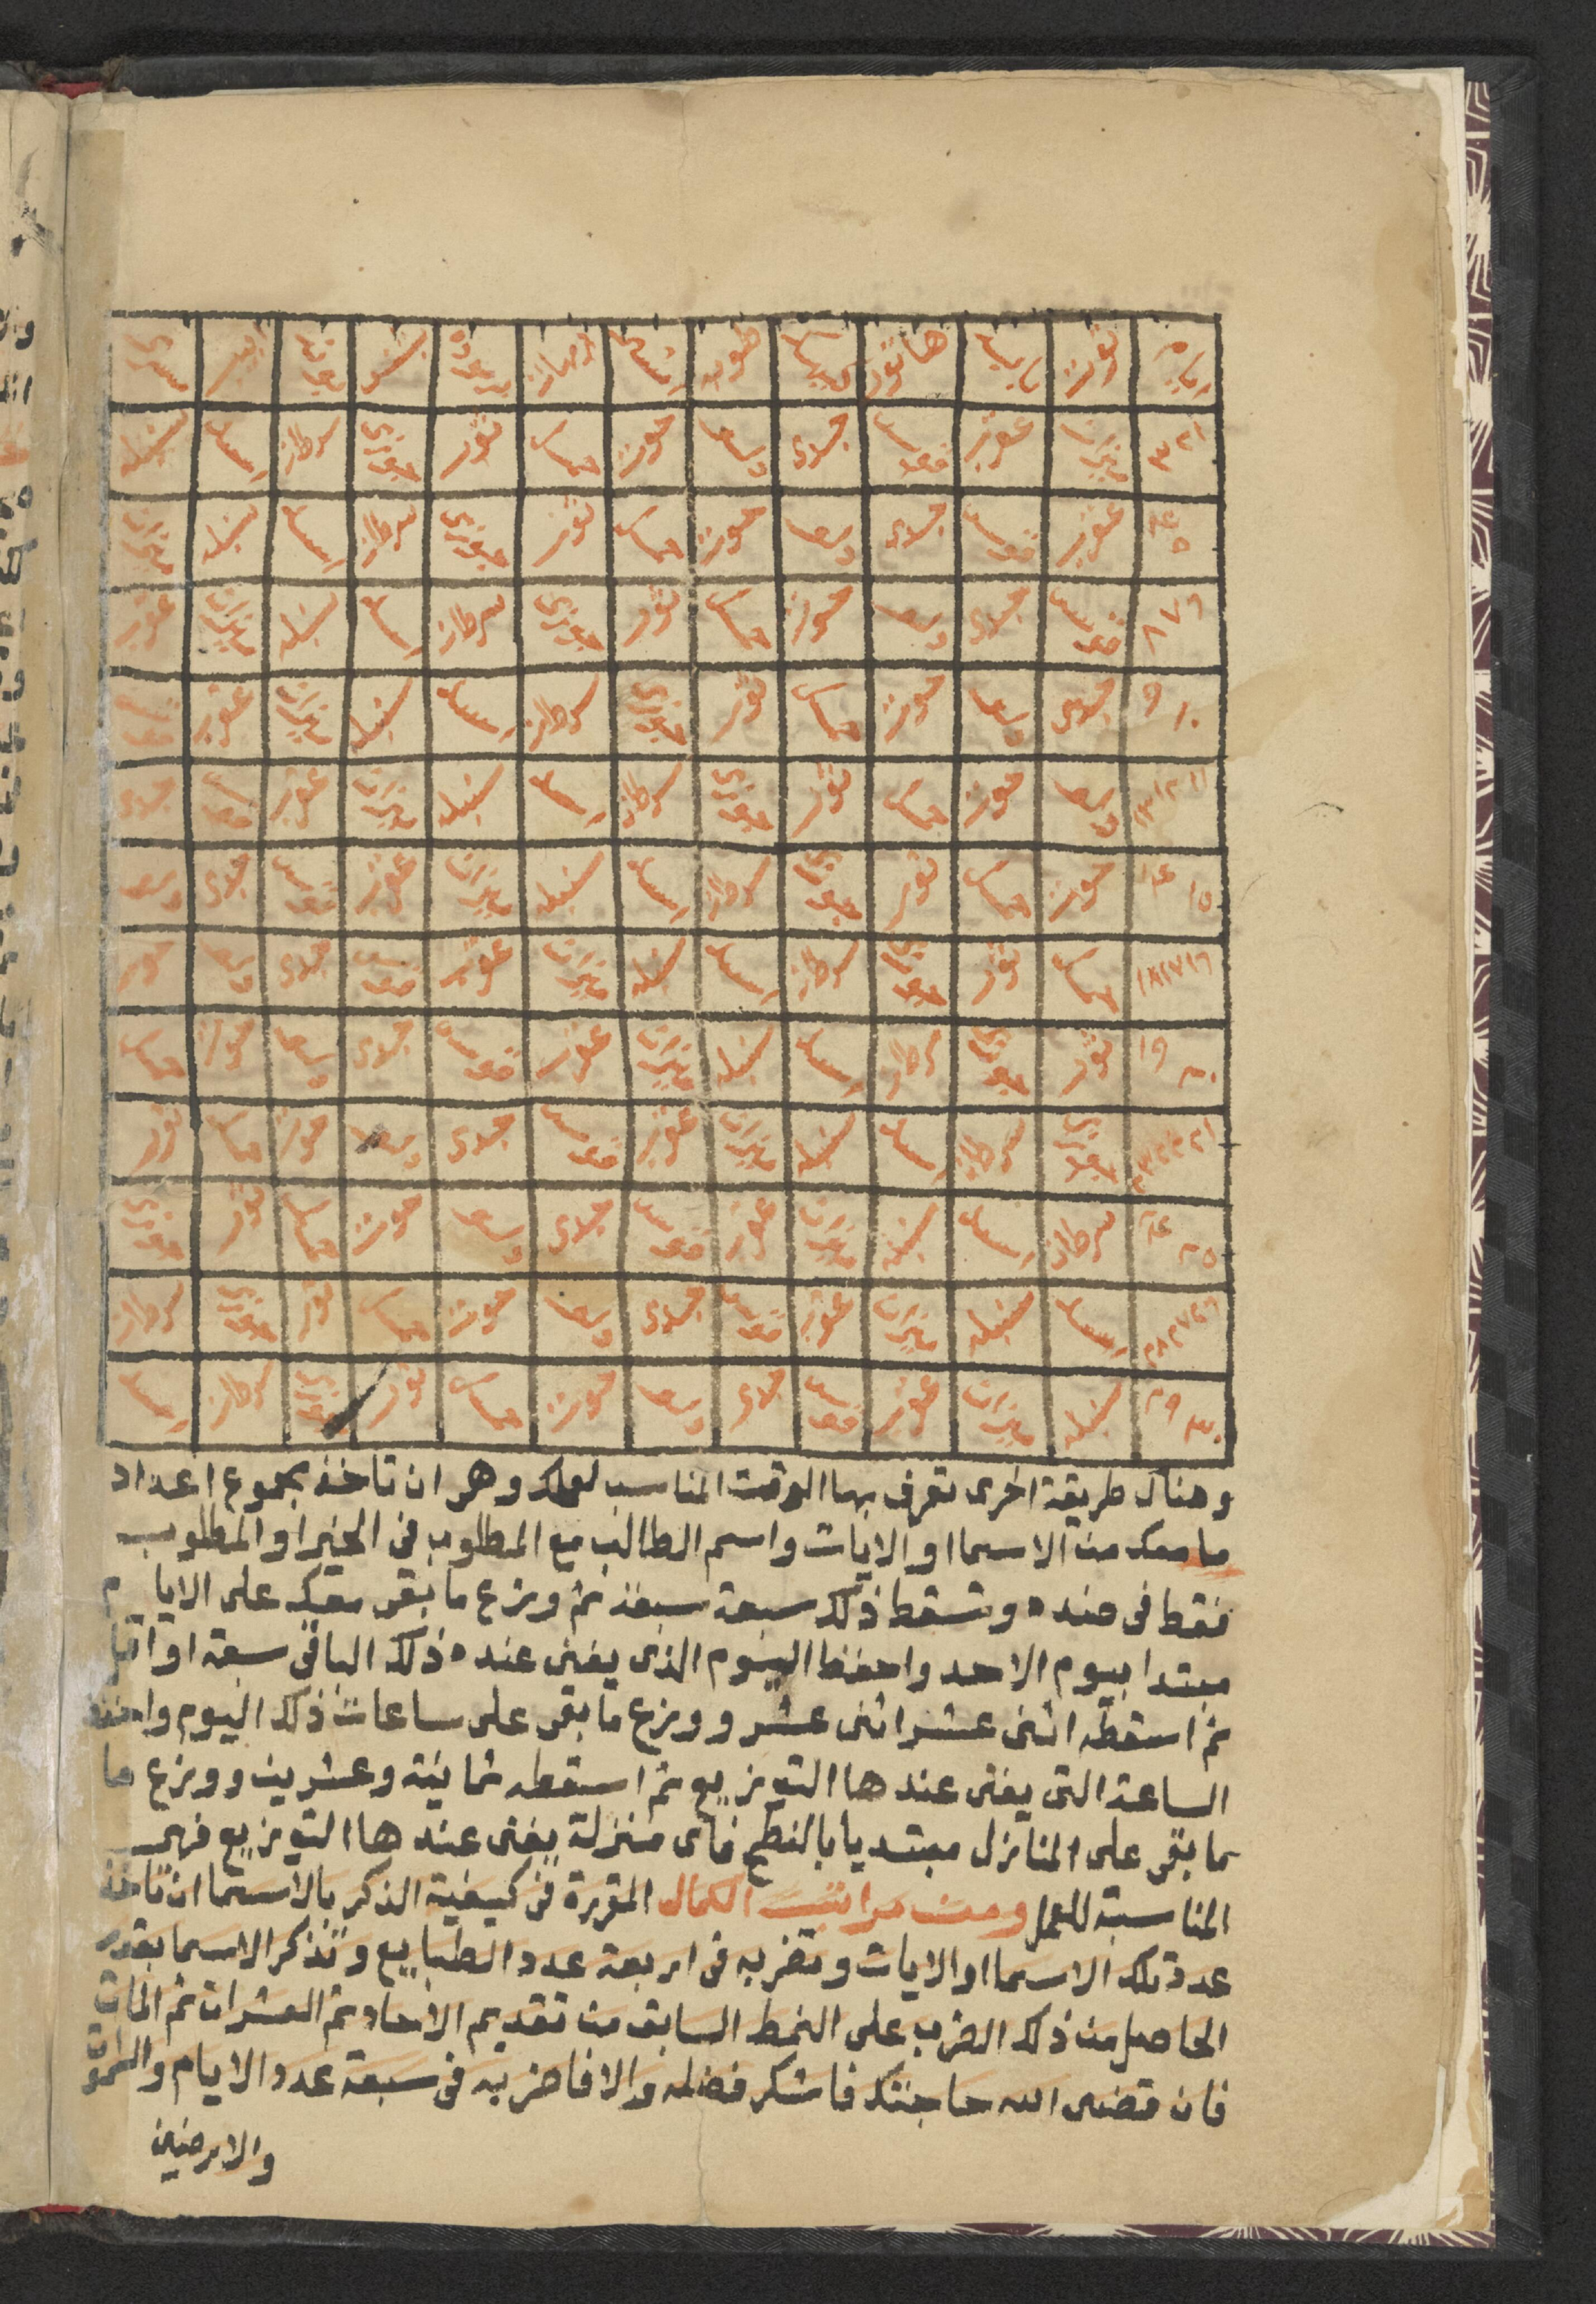 ايام توت بابه هاتور كيهك طوبه امشير برمهات برموده بشنس بونه ابيب مسرى
١ ٢ ٣ ميزان عقرب قوس جدى دلو حوت حمل ثور جوزى سرطان اسد سنبله
٤ ٥ عقرب قوس جدى دلو حوت حمل ثور جوزى سرطان اسد سنبله ميزان
٦ ٧ ٨ قوس جدى دلو حوت حمل ثور جوزى سرطان اسد سنبله ميزان عقرب
٩ ١٠ جدى دلو حوت حمل ثور جوزى سرطان اسد سنبله ميزان عقرب قوس
١١ ١٢ ١٣ دلو حوت حمل ثور جوزى سرطان اسد سنبله ميزان عقرب قوس جدى
١٤ ١٥ حوت حمل ثور جوزى سرطان اسد سنبله ميزان عقرب قوس جدى دلو
١٦ ١٧ ١٨ حمل ثور جوزى سرطان اسد سنبله ميزان عقرب قوس جدى دلو حوت
١٩ ٢٠ ثور جوزى سرطان اسد سنبله ميزان عقرب قوس جدى دلو حوت حمل
٢١ ٢٢ ٢٣ جوزى سرطان اسد سنبله ميزان عقرب قوس جدى دلو حوت حمل ثور
٢٤ ٢٥ سرطان اسد سنبله ميزان عقرب قوس جدى دلو حوت حمل ثور جوزى
٢٦ ٢٧ ٢٨ اسد سنبله ميزان عقرب قوس جدى دلو حوت حمل ثور جوزى سرطان
٢٩ ٣٠ سنبله ميزان عقرب قوس جدى دلو حوت حمل ثور جوزى سرطان اسد
وهناك طريقة اخرى تعرف بها الوقت المناسب لعملك وهو ان تاخذ مجموع اعداد
ما معك من الاسما او الايات واسم الطالب مع المطلوب فى الخير او المطلوب
فقط فى ضده وتسقط ذلك سبعة سبعة ثم وزع ما بقى معك على الايام
مبتدا بيوم الاحد واحفظ اليوم الذى يفنى عنده ذلك الباقى سبعة او اقل
ثم اسقطه اثنى عشر اثنى عشر ووزع ما بقى على ساعات ذلك اليوم واحفظ
الساعة التى يفنى عندها التوزيع ثم اسقطه ثمانية وعشرين ووزع ما
ما بقى على المنازل مبتديا بالنطح فاى منزلة يفنى عندها التوزيع فهى
المناسبة للعمل ومن مراتب الكمال المقررة فى كيفية الذكر بالاسما ان تاخذ
عدد تلك الاسما او الايات وتضربه فى اربعة عدد الطبايع وتذكر الاسما بقدر
الحاصل من ذلك الضرب على النمط السابق من تقديم الاحاد ثم العشرات ثم المات
فان قضى الله حاجتك فاشكر فضله والا فاضربه فى سبعة عدد الايام والسموات
والارضين